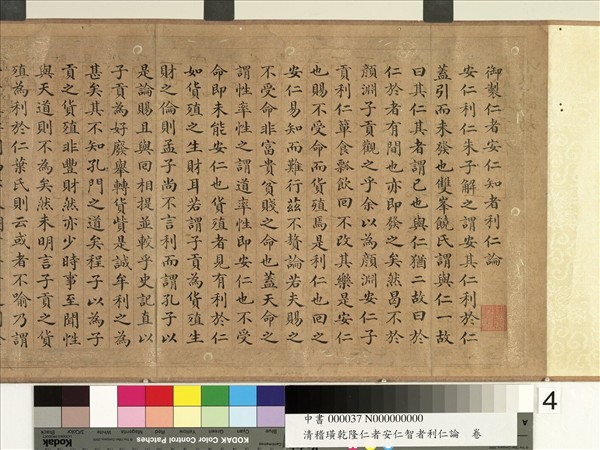 御製仁者安仁知者利仁論
安仁利仁朱子解之謂安其仁利於仁
蓋引而未發也雙峯饒氏謂與仁一故
曰其仁其者謂己也與仁猶二故曰於
仁於者有間也亦即發之矣然曷不於
顏淵子貢觀之乎余以為顏淵安仁子
貢利仁簞食瓢飲回不改其樂是安仁
也賜不受命而貨殖焉是利仁也回之
安仁易知而難行茲不贅論若夫賜之
不受命非富貴貧賤之命也蓋天命之
謂性率性之謂道率性即安仁也不受
命即未能安仁也貨殖者見有利於仁
如貨殖之生財耳若謂子貢為貨殖生
財之倫則孟子尚不言利而謂孔子以
是論賜且與回相提並較乎史記直以
子貢為好廢舉轉貨貲是誠牟利之為
甚矣其不知孔門之道矣程子以為子
貢之貨殖非豐財然亦少時事至聞性
與天道則不為矣然未明言子貢之貨
殖為利於仁葉氏則云或者不喻乃謂
4
中書 000037 N000000000
清嵇璜乾隆仁者安仁智者利仁論 卷
Kodak
KODAK Color Control Patches
Blue
Cyan
Green
Yellow
Red
Magenta